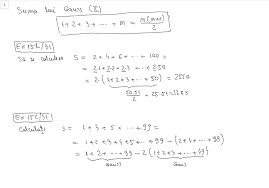 Suma lui Gauss (II)
1+2+3+ ... + n = n(n+1)/2
Ex 15b/31
Să se calculeze S = 2+4+6+ ... + 100 =
= 2·1+2·2+2·3 + ... + 2·50
= 2·(1+2+3+ ... +50) = 2550
50·51/2 = 25·51 = 1275
Ex 15c/31
Calculați S = 1+3+5+ ... +99 =
= 1+2+3+4+5+ ... +99 − (2+4+ ... +98)
= 1+2+ ... +99 − 2(1+2+3+ ... +49)
Gauss Gauss